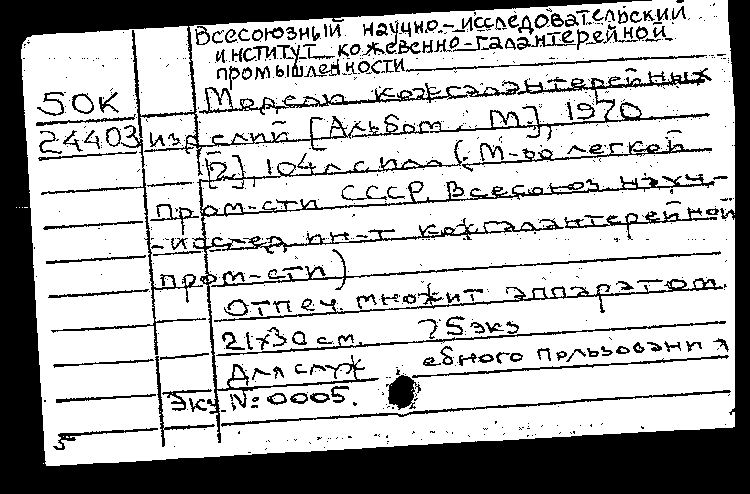 Всесоюзный научно-исследовательский
институт кожевенно-галантерейной
промышленности
50К Модели кожгалантерейных
24403 изделий [Альбом. М.], 1970
[2], 104 л с илл (М-во легкой
пром-сти СССР. Всесоюз. науч.-
-исслед ин-т кожгалантерейной
пром-сти)
Отпеч. множит аппаратом.
21х30 см. 75 экз
Для служебного пользования
Экз №0005.